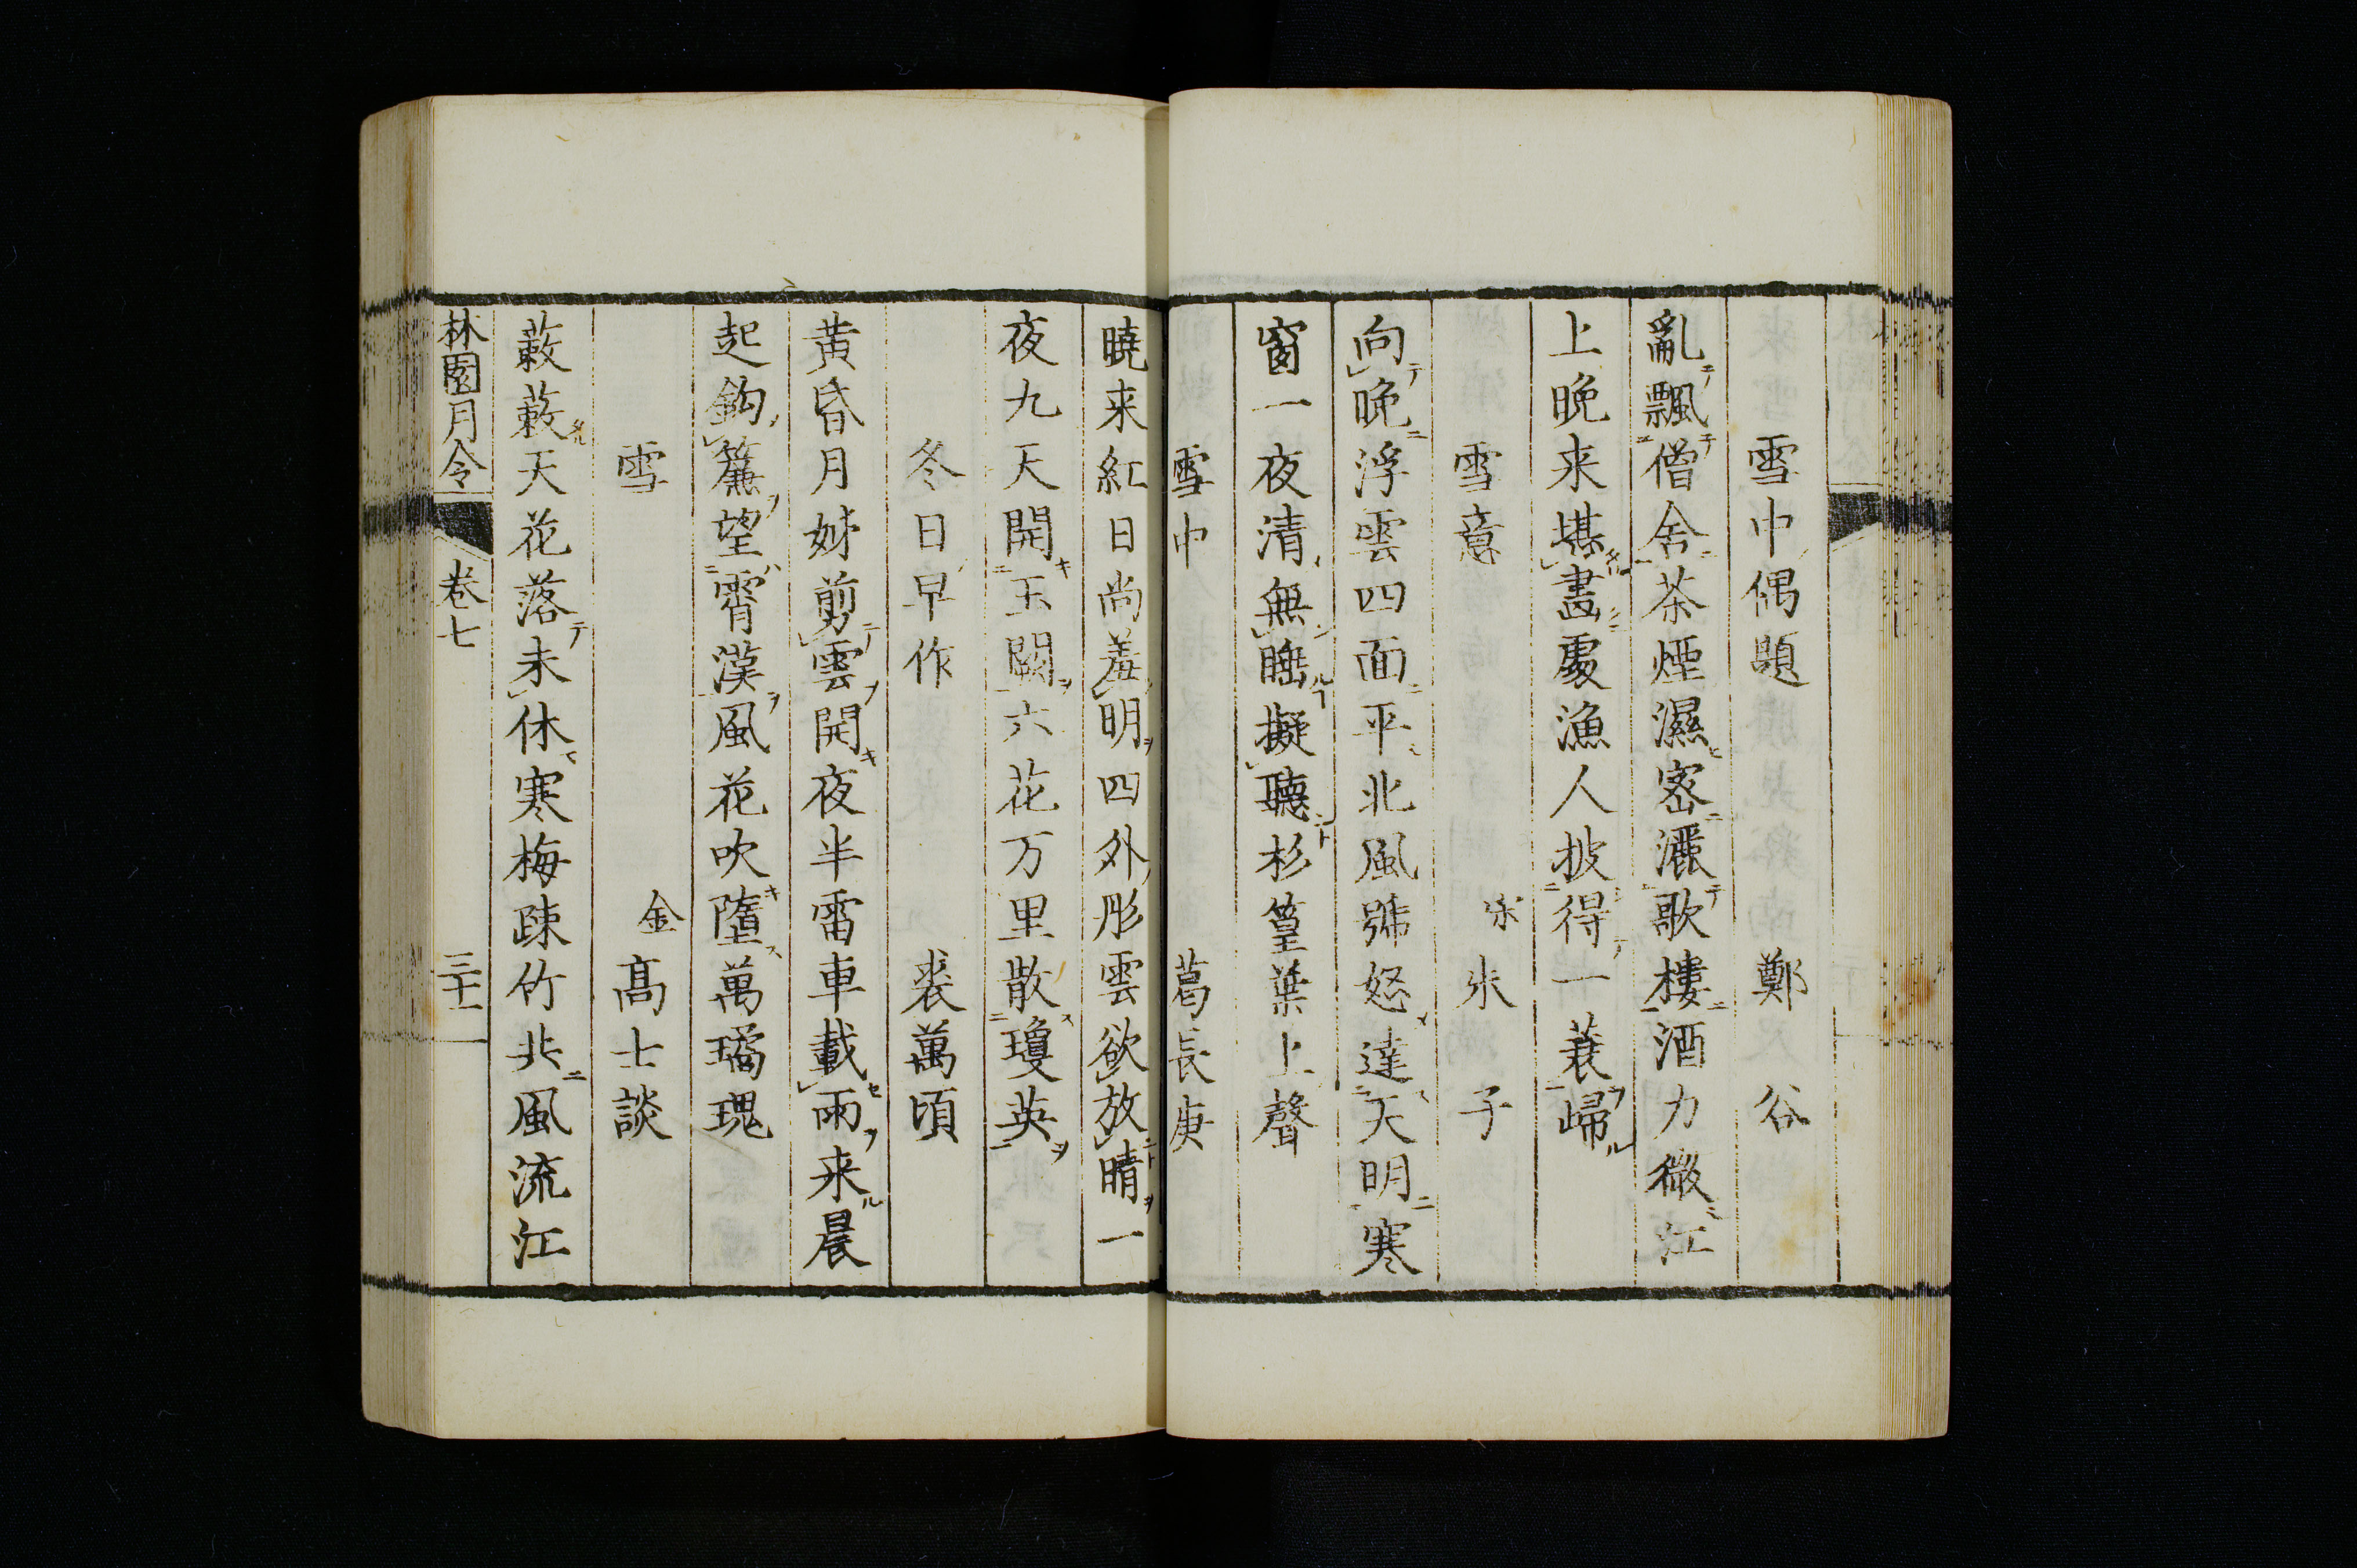 雪中偶題　鄭谷
亂飄僧舍茶煙濕密灑歌樓酒力微江
上晚来堪畫處漁人披得一蓑歸
雪意　宋　朱子
向晚浮雲四面平北風號怒達天明寒
窗一夜清無睡擬聽杉篁葉上聲
雪中　葛長庚
曉来紅日尚羞明四外彤雲欲放晴一
夜九天開玉闕六花万里散瓊英
冬日早作　裘萬頃
黄昏月姊剪雲開夜半雷車載雨来晨
起鈎簾望霄漢風花吹墮萬璚瑰
雪　金　髙士談
蔌蔌天花落未休寒梅疎竹共風流江
林園月令　巻七　三十一